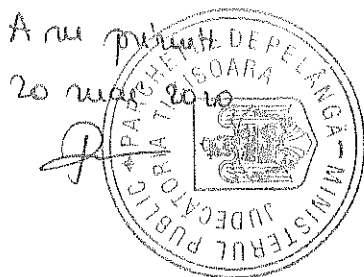 A se primit
20 mai 2020
MINISTERUL PUBLIC * PARCHETUL DE PE LÂNGĂ
JUDECĂTORIA TIMIȘOARA